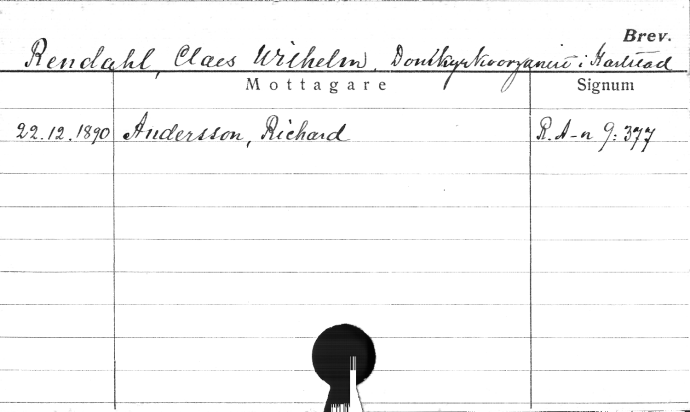 Brev.
Rendahl, Claes Wilhelm. Domkyrkoorganist i Karlstad
Mottagare Signum
22.12.1890 Andersson, Richard R. A-n 9:377